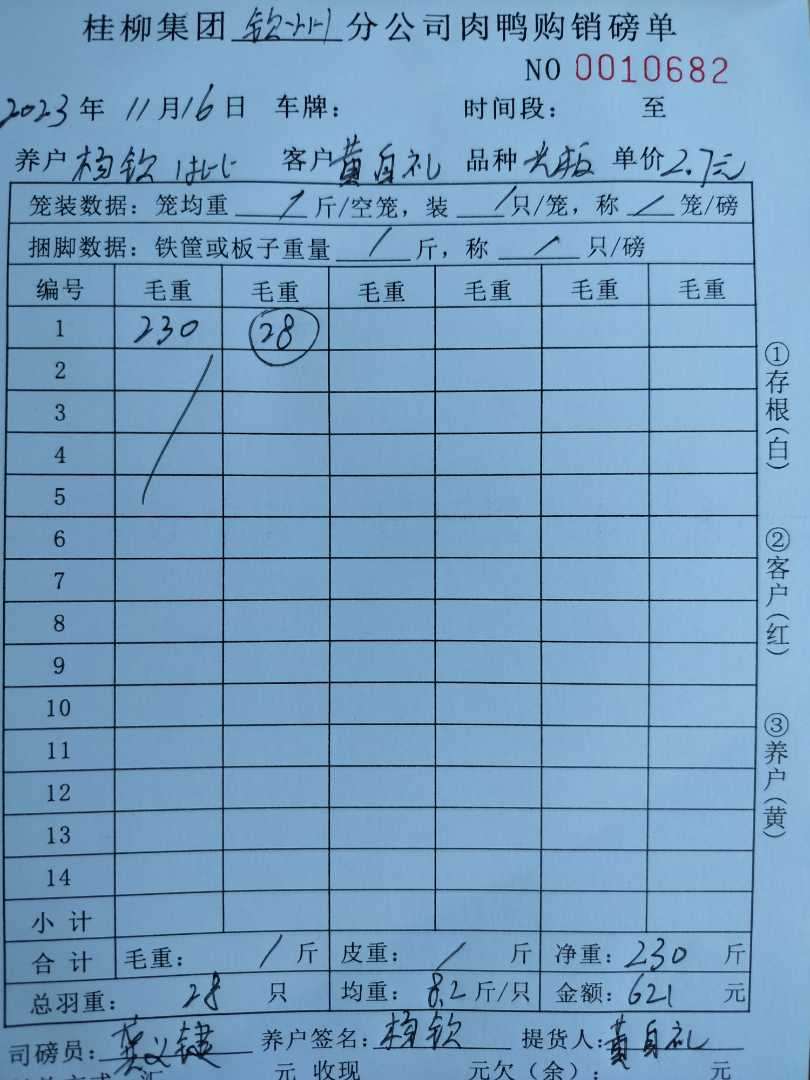 桂柳集团 钦州 分公司肉鸭购销磅单
NO 0010682
2023 年 11 月 16 日 车牌： 时间段： 至
养户 杨钦 客户 黄自礼 品种 单价 2.7元
笼装数据：笼均重 / 斤/空笼，装 / 只/笼，称 / 笼/磅
捆脚数据：铁筐或板子重量 / 斤，称 / 只/磅
编号 毛重 毛重 毛重 毛重 毛重 毛重
1 230 28
2
3
4
5
6
7
8
9
10
11
12
13
14
小计
合计 毛重： / 斤 皮重： / 斤 净重：230 斤
总羽重： 28 只 均重： 8.2 斤/只 金额：621 元
司磅员： 养户签名：杨钦 提货人：黄自礼
元 收现 元欠（余）： 元
①存根（白）
②客户（红）
③养户（黄）